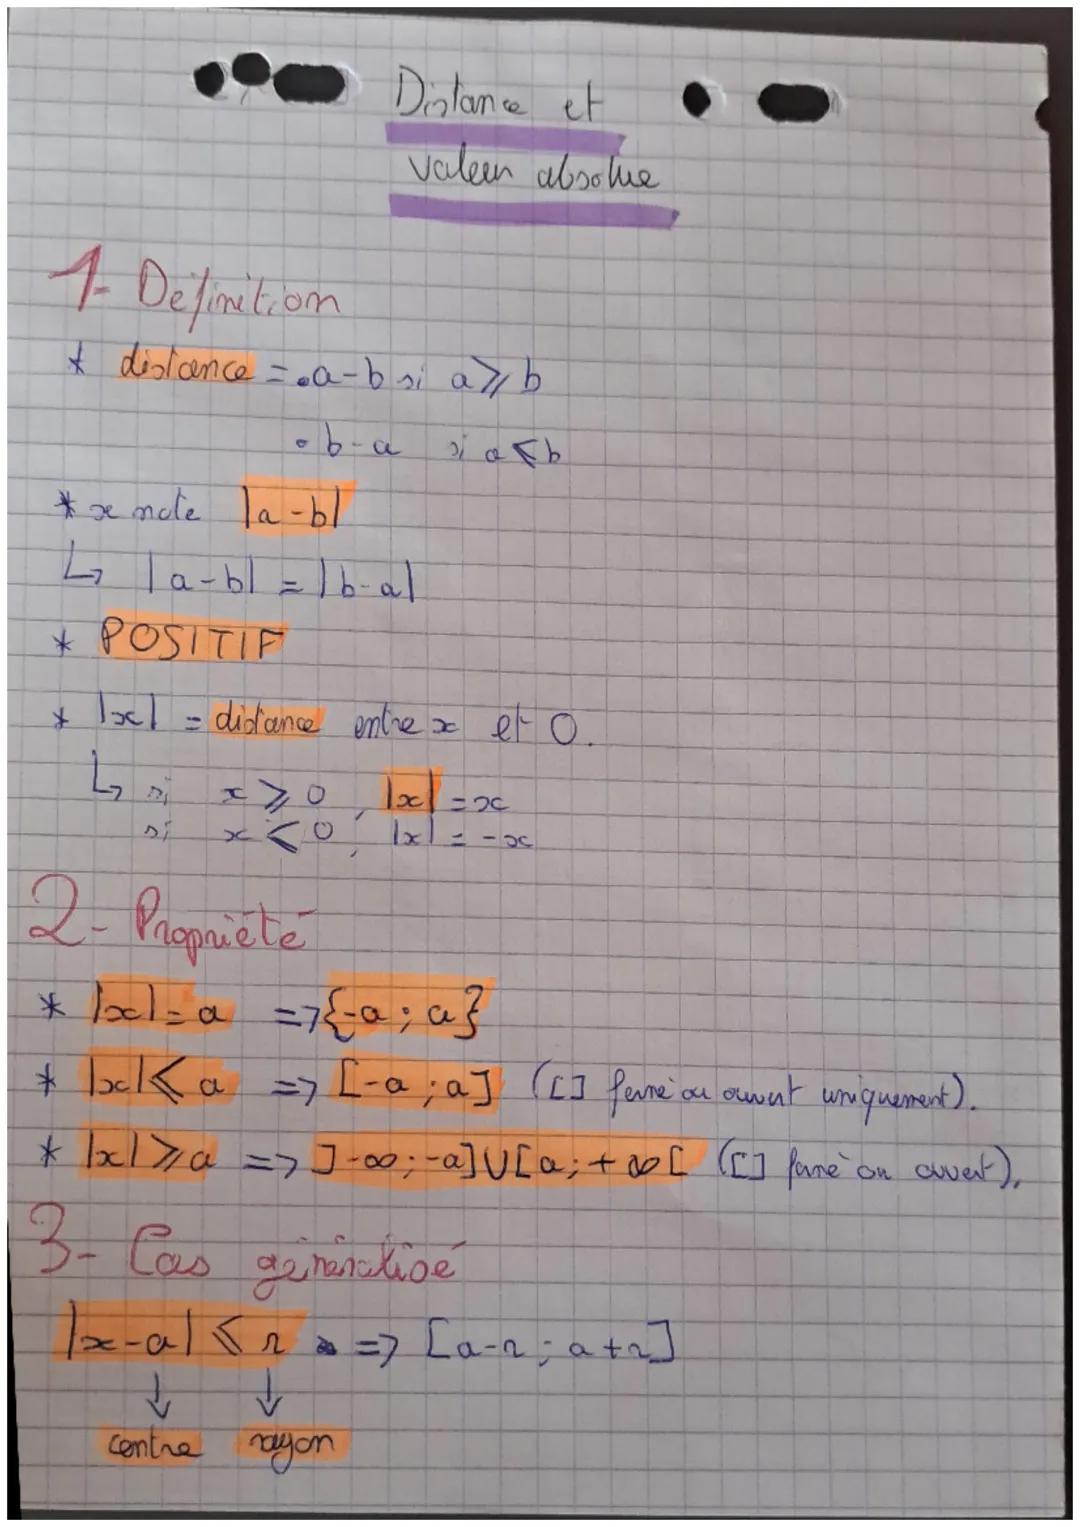 Distance et
valeur absolue
1- Définition
* distance = • a-b si a ⩾ b
• b-a si a ⩽ b
* se note |a-b|
↳ |a-b| = |b-a|
* POSITIF
* |x| = distance entre x et 0.
↳ si x ⩾ 0, |x| = x
si x < 0, |x| = -x
2- Propriété
* |x| = a => {-a ; a}
* |x| ⩽ a => [-a ; a] ([] fermé ou ouvert uniquement).
* |x| ⩾ a => ]-∞ ; -a] U [a ; +∞[ ([] fermé ou ouvert).
3- Cas généralisé
|x-a| ⩽ r => [a-r ; a+r]
↓ ↓
centre rayon